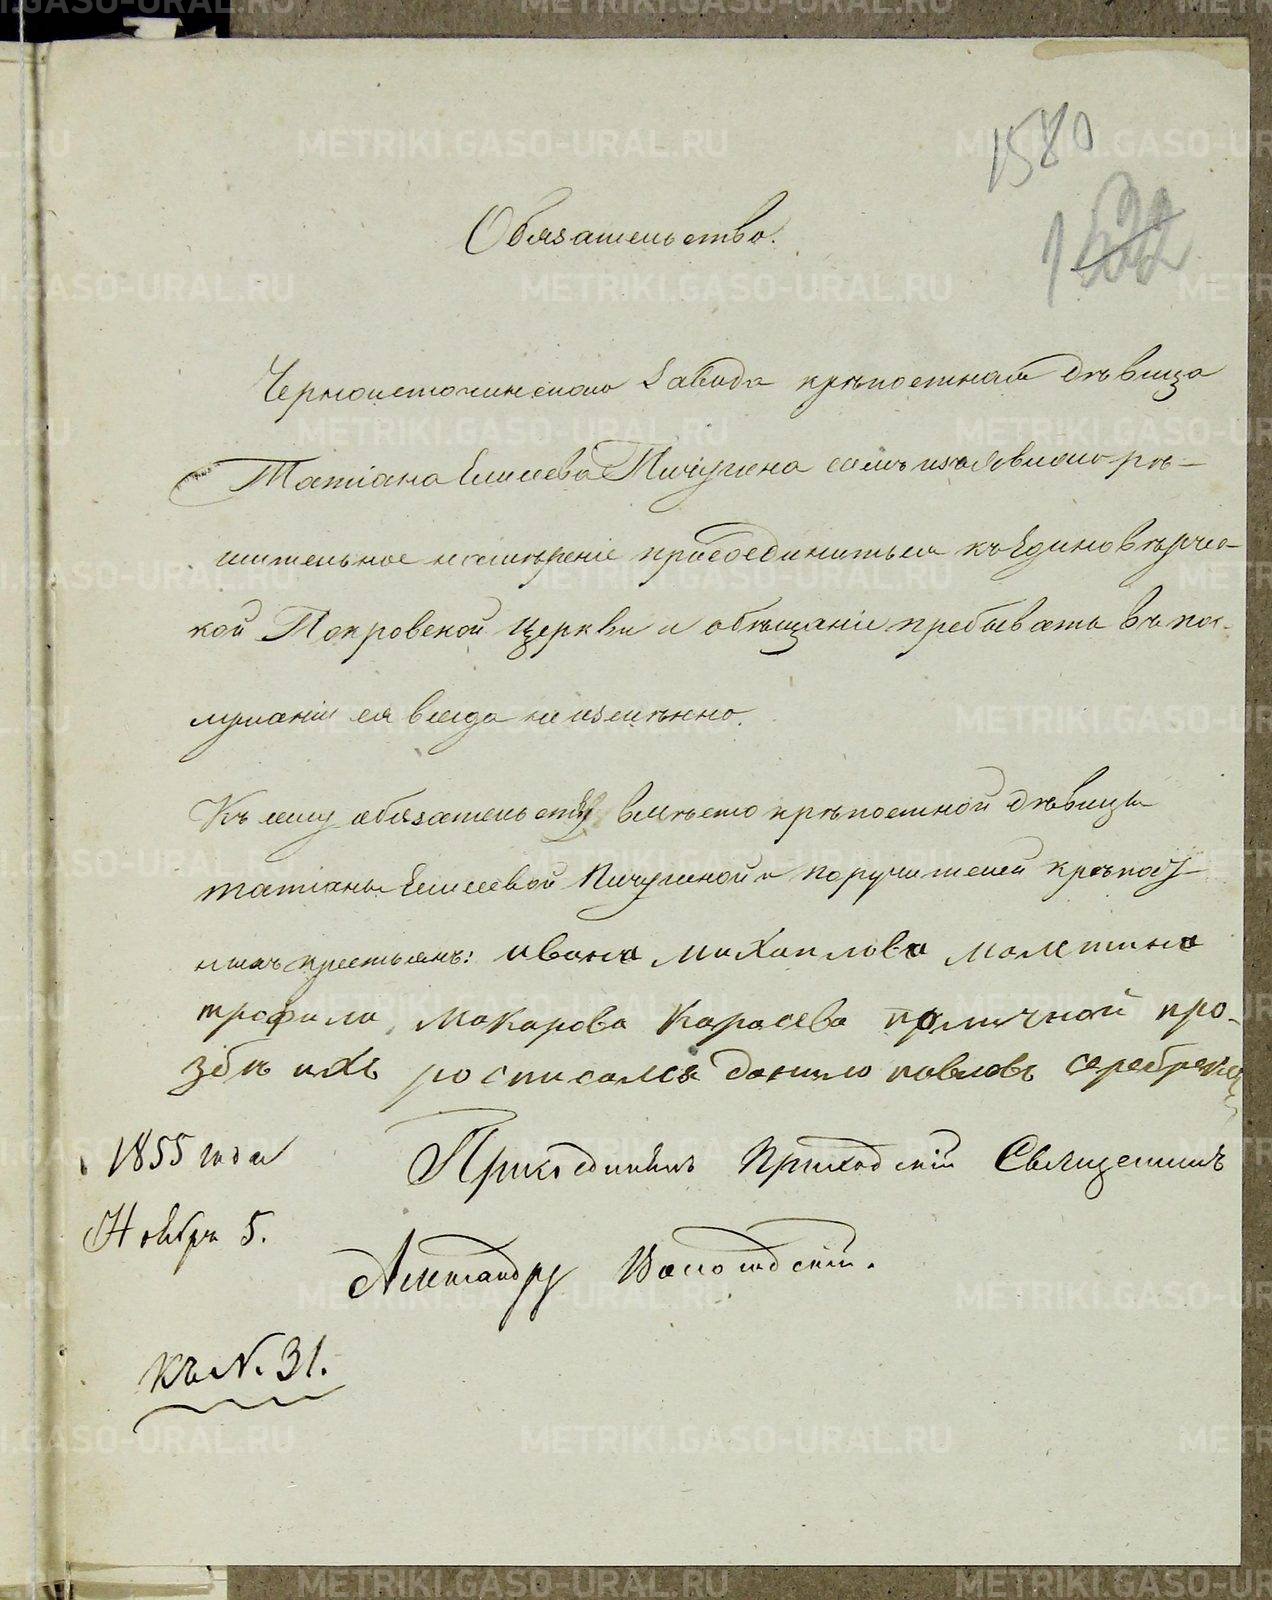 1580
1522
Обязательство.
Черноисточинскаго Завода крѣпостная дѣвица
Татіана Елисеева Пичугина симъ изъявляю рѣ-
шительное намѣреніе присоединиться къ Единовѣрчес-
кой Покровской Церкви и обѣщаніе пребывать въ пос-
лушаніи ея всегда неизмѣнно.
Къ сему обязательству вмѣсто крѣпостной дѣвицы
татіаны Елисеевой Пичугиной и поручителей крѣпост
ныхъ крестьянъ: ивана михаилова
трофима макарова Карасева по личной про-
збѣ ихъ росписалса данило павловъ
1855 года
Ноября 5.
Присоединилъ Приходскій Священникъ
Александръ
къ №. 31.
METRIKI.GASO-URAL.RU